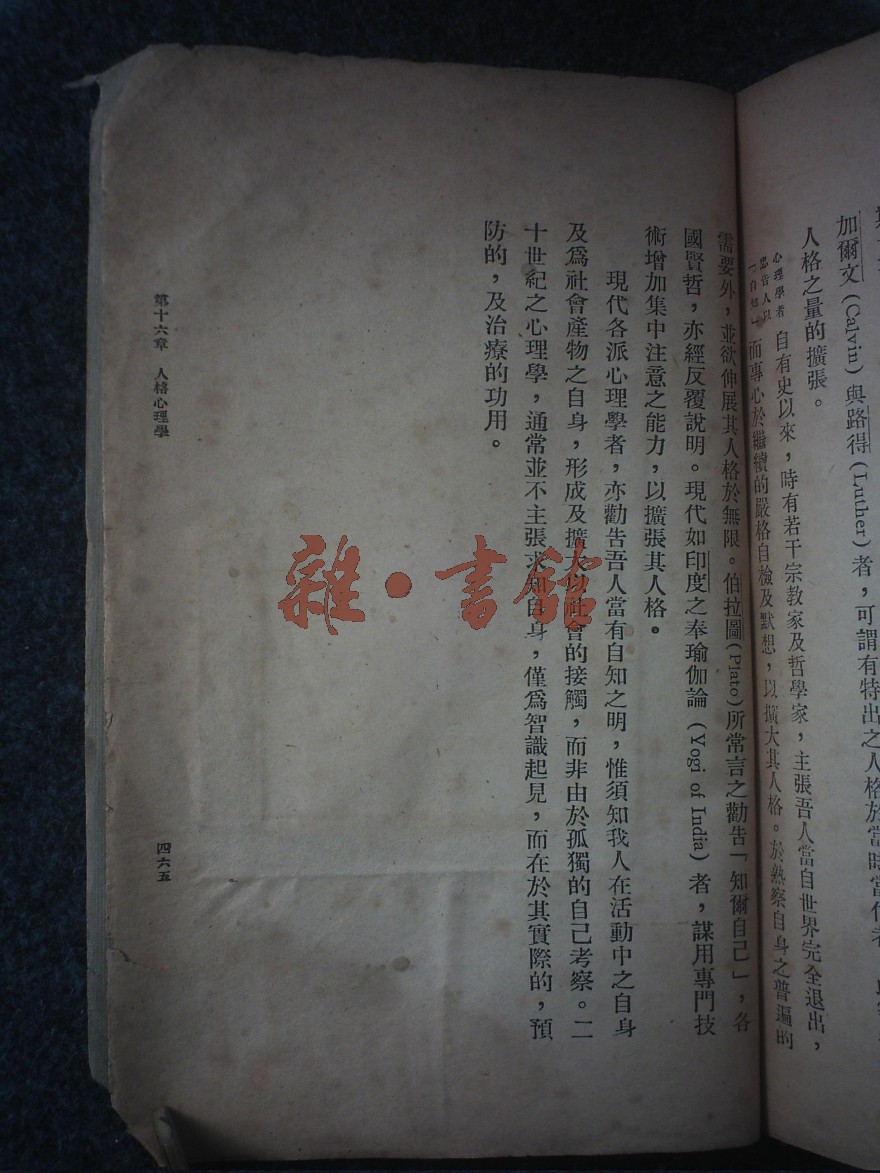 加爾文(Calvin)與路得(Luther)者，可謂有特出之人格於當時當代者
人格之量的擴張。
心理學者
忠告人以
「自知」
自有史以來，時有若干宗教家及哲學家，主張吾人當自世界完全退出，
而專心於繼續的嚴格自檢及默想，以擴大其人格。於熟察自身之普遍的
需要外，並欲伸展其人格於無限。伯拉圖(Plato)所常言之勸告「知爾自己」，各
國賢哲，亦經反覆說明。現代如印度之奉瑜伽論(Yogi of India)者，謀用專門技
術增加集中注意之能力，以擴張其人格。
現代各派心理學者，亦勸告吾人當有自知之明，惟須知我人在活動中之自身
及爲社會產物之自身，形成及擴大以社會的接觸，而非由於孤獨的自己考察。二
十世紀之心理學，通常並不主張求知自身，僅爲智識起見，而在於其實際的，預
防的，及治療的功用。
第十六章　人格心理學
四六五
雜·書館